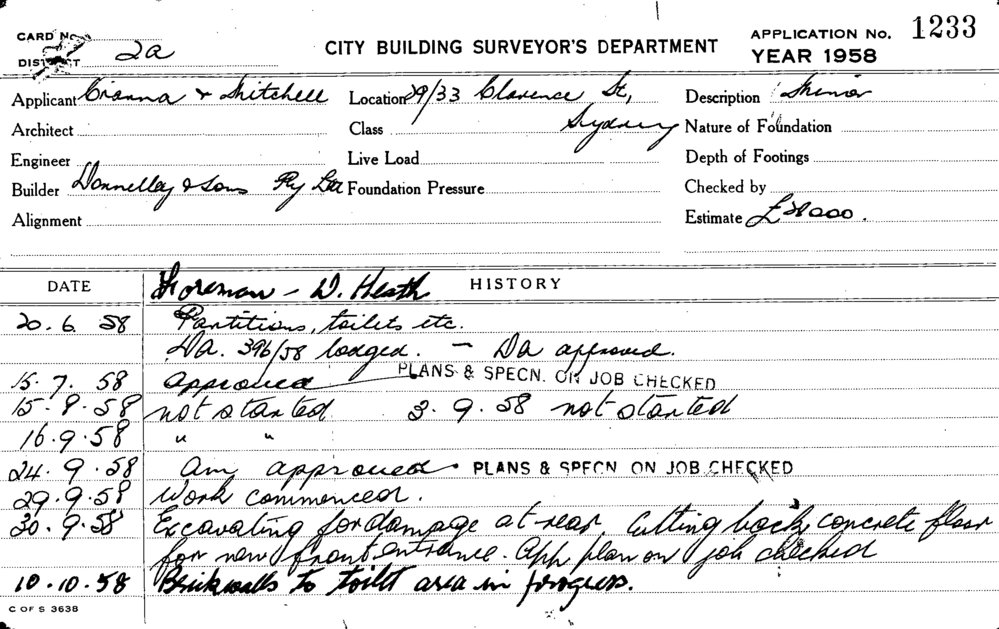 CARD No.
DISTRICT 2a
CITY BUILDING SURVEYOR'S DEPARTMENT
APPLICATION No. 1233
YEAR 1958
Applicant Cranna & Mitchell Location 29/33 Clarence St, Description Minor
Architect Class Sydney Nature of Foundation
Engineer Live Load Depth of Footings
Builder Donnelley & Sons Pty Ltd Foundation Pressure Checked by
Alignment Estimate £28000.
DATE Foreman - W. Heath HISTORY
20.6.58 Partitions, toilets etc.
Da. 396/58 lodged. - Da approved.
15.7.58 approved PLANS & SPECN. ON JOB CHECKED
15.8.58 not started 3.9.58 not started
16.9.58 " "
24.9.58 Am approved. PLANS & SPECN ON JOB CHECKED
29.9.58 Work commenced.
30.9.58 Excavating for damage at rear, Cutting back concrete floor
for new front entrance. App plan on job checked
10.10.58 Brickwalls to toilet area in progress.
C OF S 3638